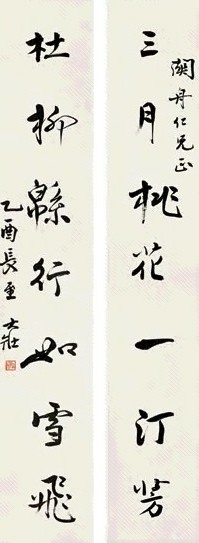 舟仁兄正
三月桃花一汀
杜柳緜行如雪飛
乙酉長至 大壯